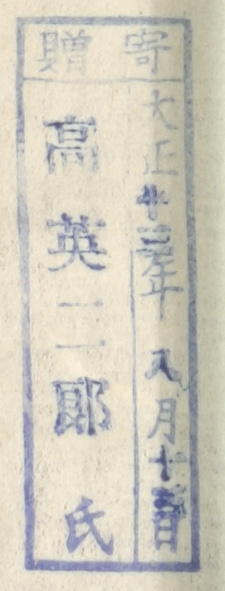 寄贈
大正十三年八月十三日
高英二郎氏